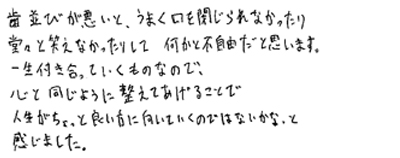 歯並びが悪いと、うまく口を閉じられなかったり
堂々と笑えなかったりして 何かと不自由だと思います。
一生付き合っていくものなので、
心と同じように整えてあげることで
人生がちょっと良い方に向いていくのではないかな、と
感じました。